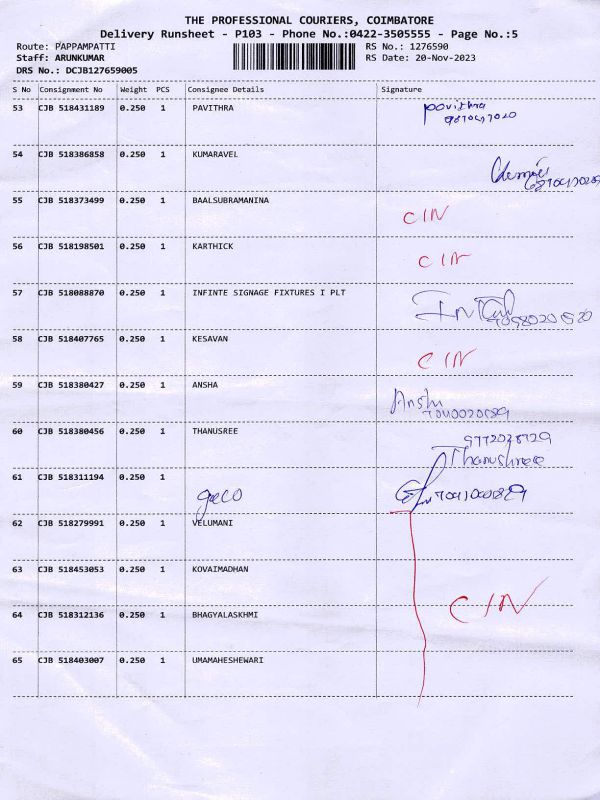 THE PROFESSIONAL COURIERS, COIMBATORE
Delivery Runsheet - P103 - Phone No.:0422-3505555 - Page No.:5
Route: PAPPAMPATTI RS No.: 1276590
Staff: ARUNKUMAR RS Date: 20-Nov-2023
DRS No.: DCJB127659005
S No Consignment No Weight PCS Consignee Details Signature
53 CJB 518431189 0.250 1 PAVITHRA pavithra
54 CJB 518386858 0.250 1 KUMARAVEL
55 CJB 518373499 0.250 1 BAALSUBRAMANINA CIN
56 CJB 518198501 0.250 1 KARTHICK CIN
57 CJB 518088870 0.250 1 INFINTE SIGNAGE FIXTURES I PLT
58 CJB 518407765 0.250 1 KESAVAN CIN
59 CJB 518380427 0.250 1 ANSHA Anshu
60 CJB 518380456 0.250 1 THANUSREE
Thanushree
61 CJB 518311194 0.250 1
62 CJB 518279991 0.250 1 VELUMANI
63 CJB 518453053 0.250 1 KOVAIMADHAN
CIN
64 CJB 518312136 0.250 1 BHAGYALASKHMI
65 CJB 518403007 0.250 1 UMAMAHESHEWARI